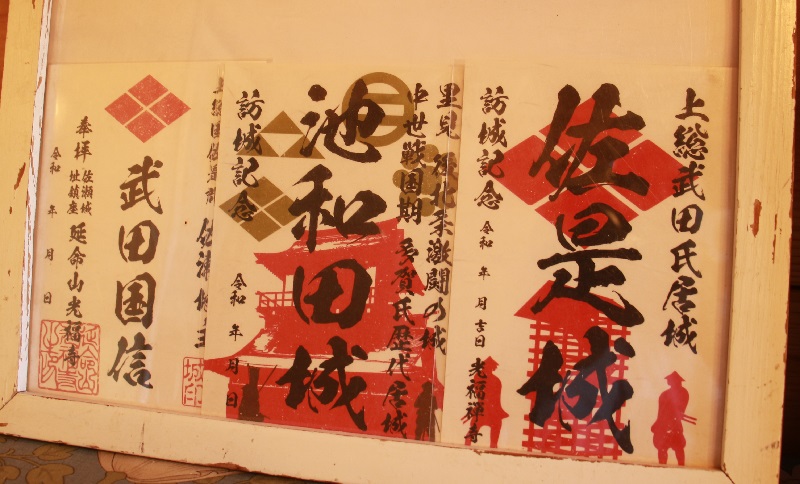 上総武田氏居城
佐是城
訪城記念
令和 年 月吉日 光福禅寺
里見 後北条激闘の城
中世戦国期 多賀氏歴代居城
池和田城
訪城記念
令和 年 月 日
武田国信
奉拝 佐瀬城址鎮座 延命山光福寺
令和 年 月 日